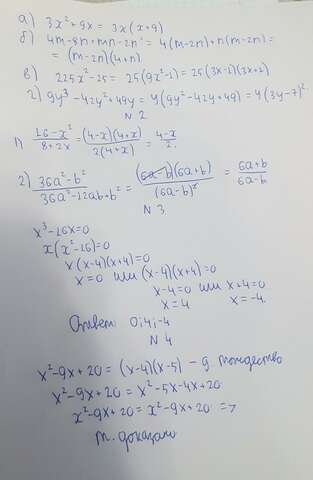 а) 3x²+9x = 3x(x+9)
б) 4m-8n+mn-2n² = 4(m-2n)+n(m-2n)=
= (m-2n)(4+n)
в) 225x²-25 = 25(9x²-1) = 25(3x-1)(3x+1)
2) 9y³-42y²+49y = y(9y²-42y+49) = y(3y-7)².
N 2
1) 16-x²/8+2x = (4-x)(4+x)/2(4+x) = 4-x/2.
2) 36a²-b²/36a²-12ab+b² = (6a-b)(6a+b)/(6a-b)² = 6a+b/6a-b
N 3
x³-16x=0
x(x²-16)=0
x(x-4)(x+4)=0
x=0 или (x-4)(x+4)=0
x-4=0 или x+4=0
x=4 x=-4.
Ответ: 0;4;-4
N 4
x²-9x+20 = (x-4)(x-5) - д. тождество
x²-9x+20 = x²-5x-4x+20
x²-9x+20 = x²-9x+20 =>
т. доказано